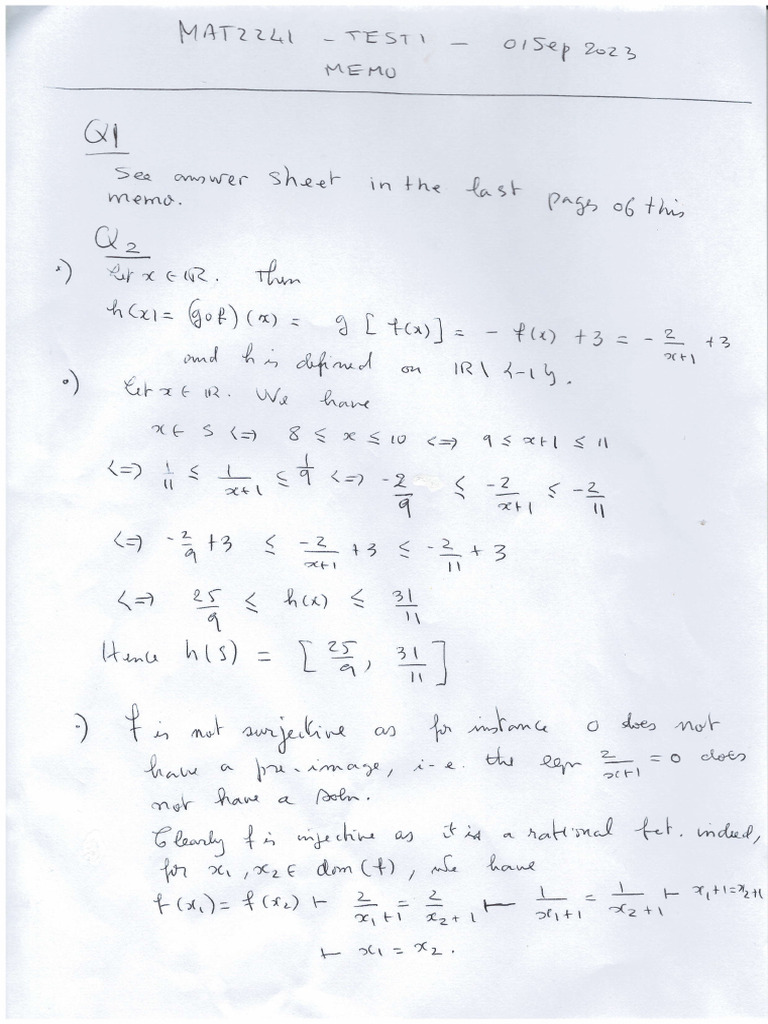 MAT2241 - TEST1 - 01Sep 2023
MEMO
Q1
See answer sheet in the last pages of this
memo.
Q2
•) Let x ∈ ℝ. Then
h(x) = (g∘f)(x) = g[f(x)] = - f(x) + 3 = - 2/(x+1) + 3
and h is defined on ℝ \ {-1}.
•) Let x ∈ ℝ. We have
x ∈ S <=> 8 ≤ x ≤ 10 <=> 9 ≤ x+1 ≤ 11
<=> 1/11 ≤ 1/(x+1) ≤ 1/9 <=> -2/9 ≤ -2/(x+1) ≤ -2/11
<=> -2/9 + 3 ≤ -2/(x+1) + 3 ≤ -2/11 + 3
<=> 25/9 ≤ h(x) ≤ 31/11
Hence h(S) = [25/9, 31/11]
•) f is not surjective as for instance 0 does not
have a pre-image, i-e. the eqn 2/(x+1) = 0 does
not have a soln.
Clearly f is injective as it is a rational fct. indeed,
for x₁, x₂ ∈ dom(f), we have
f(x₁) = f(x₂) ⊢ 2/(x₁+1) = 2/(x₂+1) ⊢ 1/(x₁+1) = 1/(x₂+1) ⊢ x₁+1=x₂+1
⊢ x₁ = x₂.